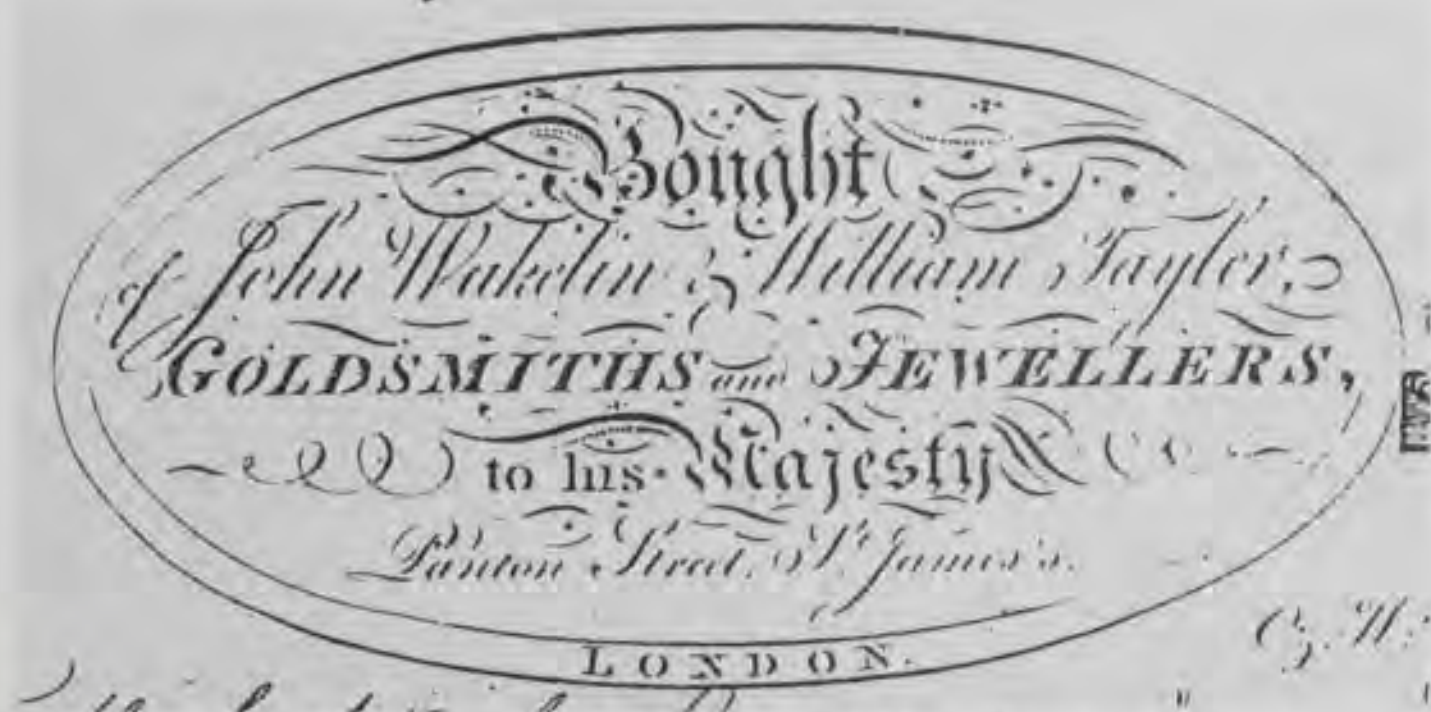 Bought
of John Wakelin & William Tayler,
GOLDSMITHS and JEWELLERS,
to his Majesty
Panton Street, St. James's.
LONDON.
Oz.